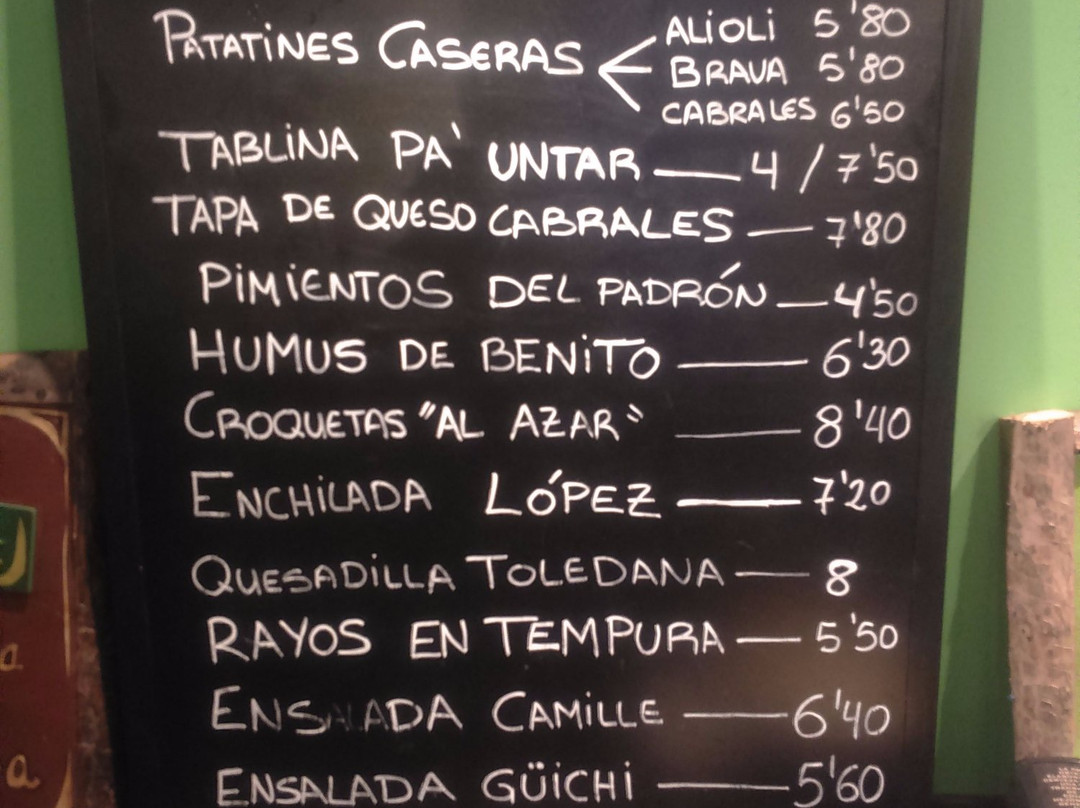 PATATINES CASERAS < ALIOLI 5'80
BRAVA 5'80
CABRALES 6'50
TABLINA PA' UNTAR — 4 / 7'50
TAPA DE QUESO CABRALES — 7'80
PIMIENTOS DEL PADRÓN — 4'50
HUMUS DE BENITO — 6'30
CROQUETAS "AL AZAR" — 8'40
ENCHILADA LÓPEZ — 7'20
QUESADILLA TOLEDANA — 8
RAYOS EN TEMPURA — 5'50
ENSALADA CAMILLE — 6'40
ENSALADA GÜICHI — 5'60